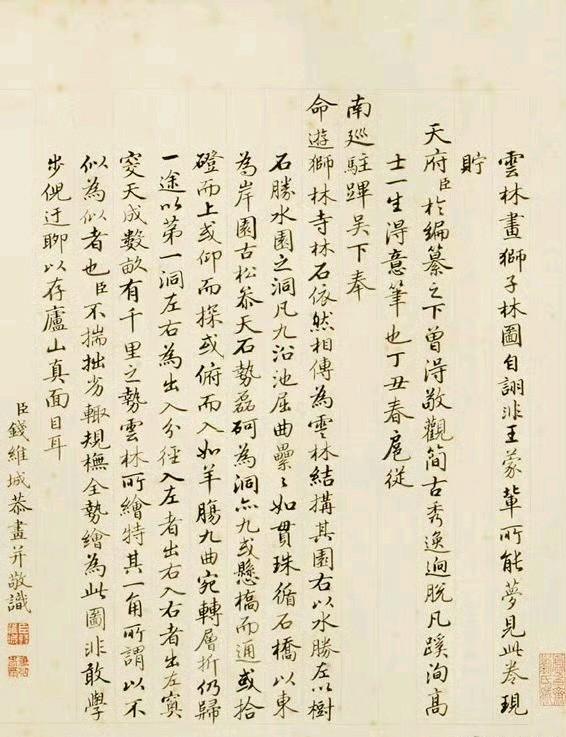 雲林畫獅子林圖自詡非王蒙輩所能夢見此卷現
貯
天府臣於編纂之下曾得敬觀簡古秀逸迥脫凡蹊洵高
士一生得意筆也丁丑春扈從
南廵駐蹕吳下奉
命遊獅林寺林石依然相傳為雲林結搆其園右以水勝左以樹
石勝水園之洞凡九沿池屈曲纍〻如貫珠循石橋以東
為岸園古松叅天石勢磊砢為洞亦九或懸橋而通或拾
磴而上或仰而探或俯而入如羊腸九曲宛轉層折仍歸
一途以第一洞左右為出入分徑入左者出右入右者出左窅
窔天成數畝有千里之勢雲林所繪特其一角所謂以不
似為似者也臣不揣拙劣輙規橅全勢繪為此圖非敢學
步倪迂聊以存廬山真面目耳
臣錢維城恭畫并敬識